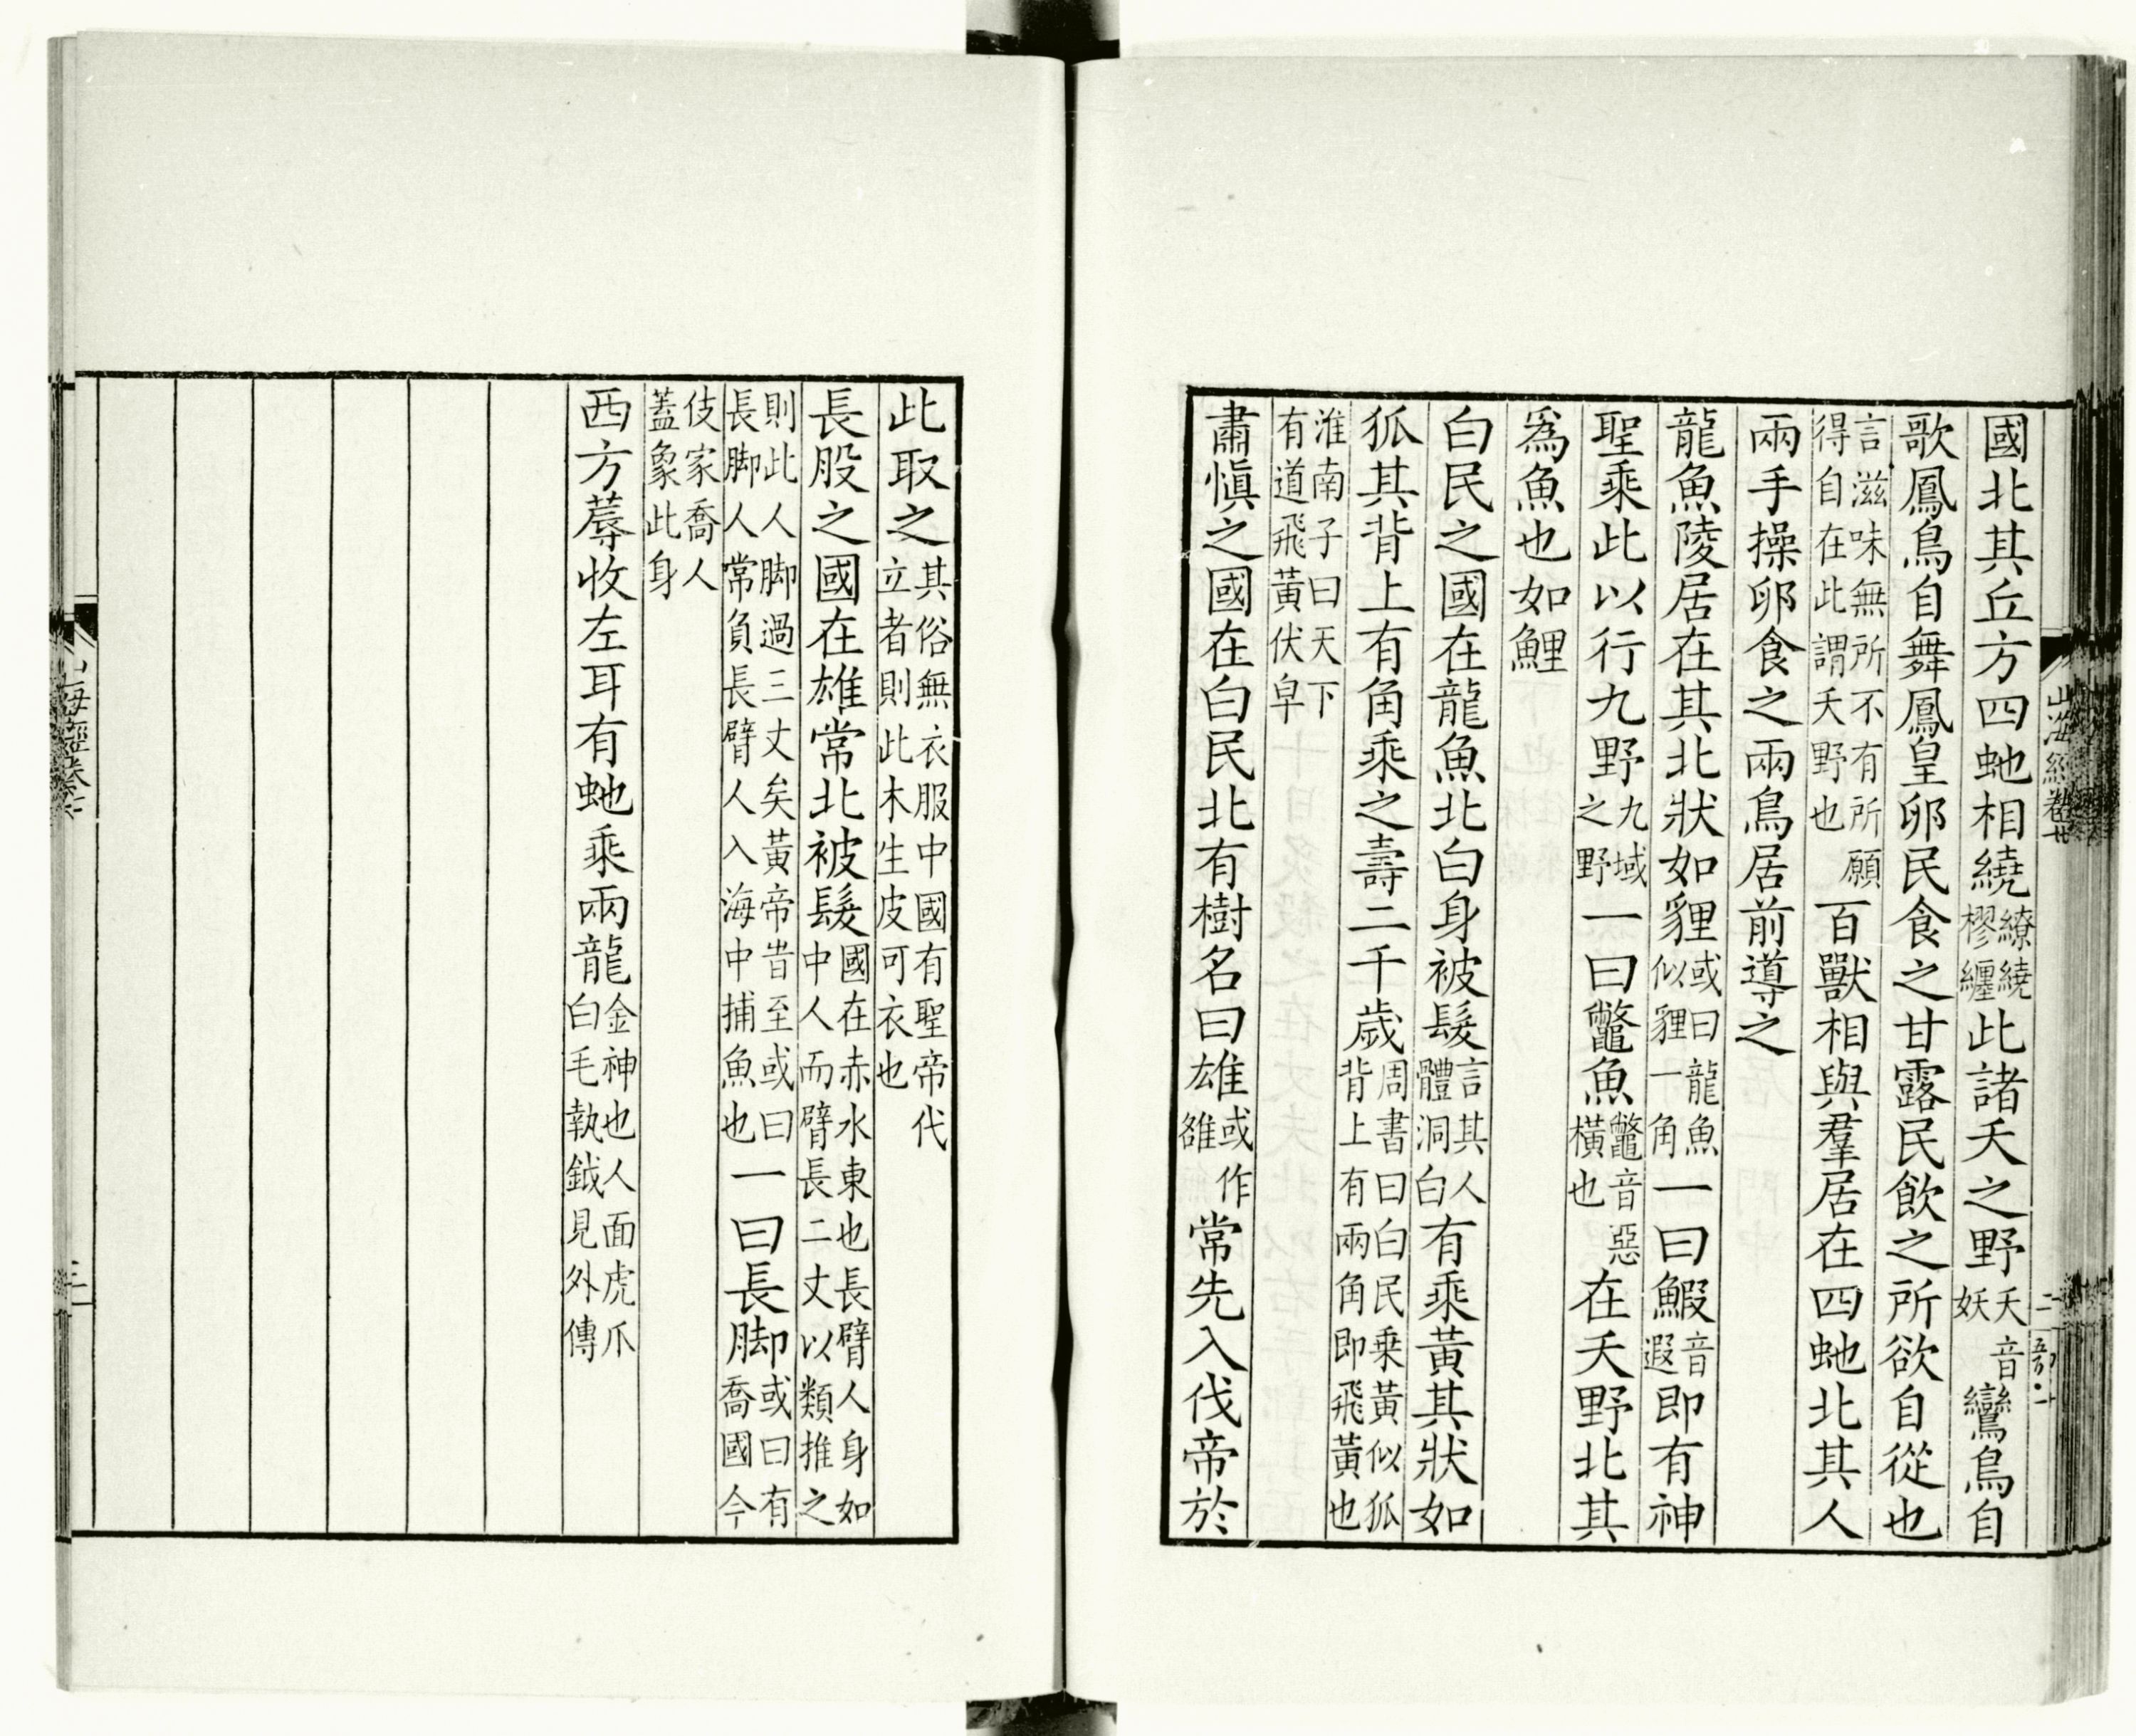 國北其丘方四虵相繞繚繞樛纏此諸夭之野夭音妖鸞鳥自
歌鳳鳥自舞鳳皇卵民食之甘露民飲之所欲自從也
言滋味無所不有所願得自在此謂夭野也百獸相與羣居在四虵北其人
兩手操卵食之兩鳥居前導之
龍魚陵居在其北狀如貍或曰龍魚似貍一角一曰鰕音遐即有神
聖乘此以行九野九域之野一曰鼈魚鼈音惡橫也在夭野北其
爲魚也如鯉
白民之國在龍魚北白身被髮言其人體洞白有乘黃其狀如
狐其背上有角乘之壽二千歲周書曰白民乗黃似狐背上有兩角即飛黃也
淮南子曰天下有道飛黃伏皁
肅慎之國在白民北有樹名曰雄或作雒常先入伐帝於
山海經卷七
二
此取之其俗無衣服中國有聖帝代立者則此木生皮可衣也
長股之國在雄常北被髮國在赤水東也長臂人身如中人而臂長二丈以類推之
則此人脚過三丈矣黃帝昔至或曰長脚人常負長臂人入海中捕魚也一曰長脚或曰有喬國今
伎家喬人蓋象此身
西方蓐收左耳有虵乘兩龍金神也人面虎爪白毛執鉞見外傳
山海經卷七
三